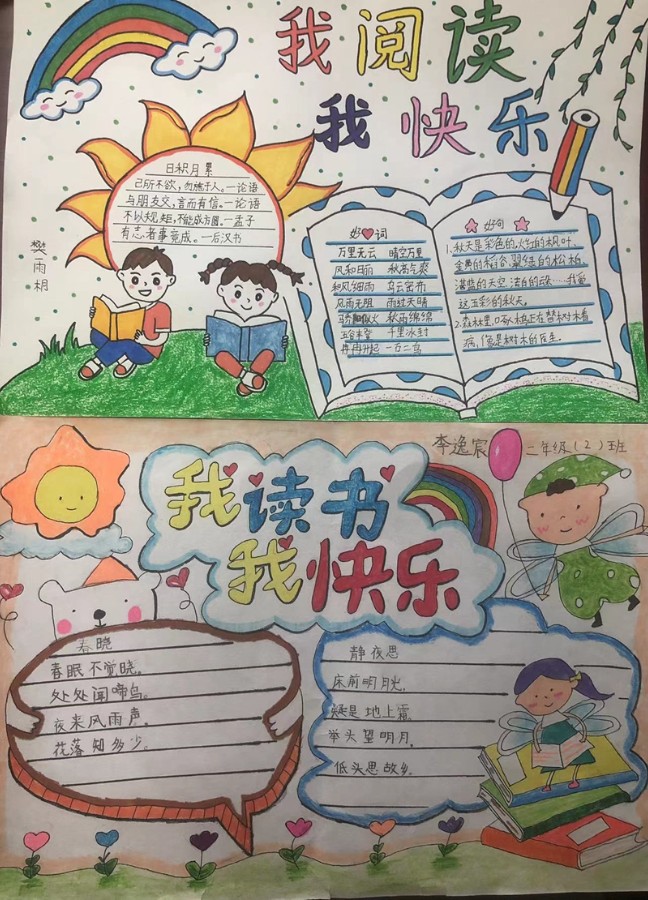 我阅读
我快乐
日积月累
己所不欲，勿施于人。—论语
与朋友交，言而有信。—论语
不以规矩，不能成方圆。—孟子
有志者事竟成。—后汉书
樊雨桐
好词
万里无云 晴空万里
风和日丽 秋高气爽
和风细雨 乌云密布
风雨无阻 雨过天晴
骄阳似火 秋雨绵绵
千里冰封
冉冉升起
好句
1.秋天是彩色的，火红的枫叶、
金黄的稻谷 翠绿的松柏
湛蓝的天空 洁白的云……我爱
这五彩的秋天。
2.森林里，啄木鸟正在替树木看
病，像是树木的医生。
李逸宸 二年级（2）班
我读书
我快乐
春晓
春眠不觉晓。
处处闻啼鸟。
夜来风雨声。
花落知多少。
静夜思
床前明月光，
疑是地上霜。
举头望明月，
低头思故乡。